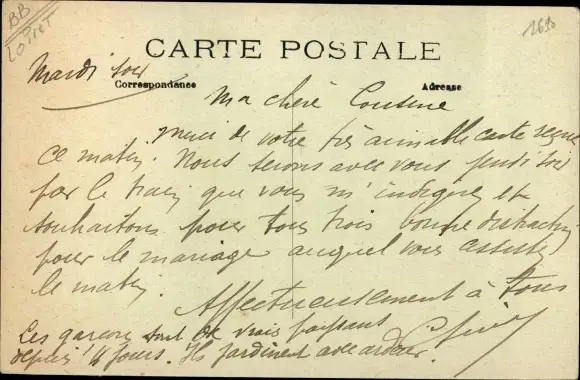 BB
LOIRET
1610
CARTE POSTALE
Mardi soir
Correspondance
Adresse
Ma chère Cousine
Merci de votre très aimable carte reçue
ce matin. Nous serons avec vous jeudi soir
par le train que vous m'indiquez et
souhaitons pour tous trois bonne distraction
pour le mariage auquel vous assistez
le matin.
Affectueusement à tous
Les garçons sont de vrais paysans
depuis 4 jours. Ils jardinent avec ardeur.